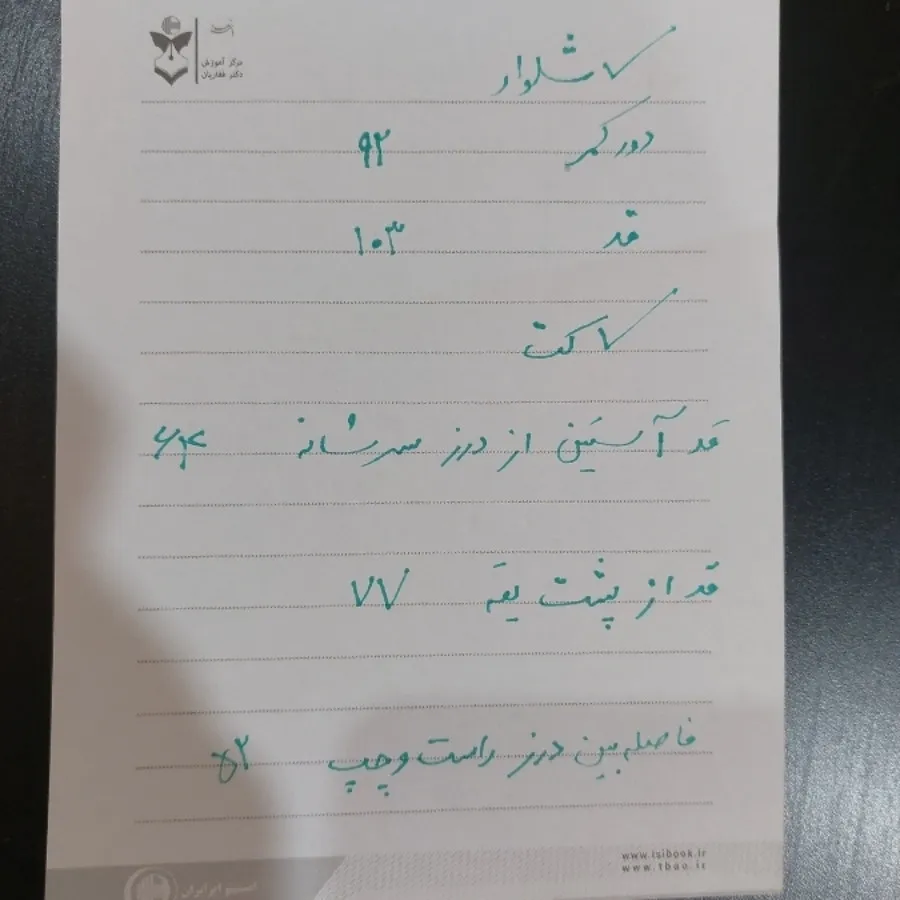 مرکز آموزش
دکتر غفاریان
✓ شلوار
دور کمر ۹۲
قد ۱۰۳
✓ کت
قد آستین از درز سرشانه ۶۴
قد از پشت یقه ۷۷
فاصله بین درز راست و چپ ۵۲
www.isibook.ir
www.tbao.ir